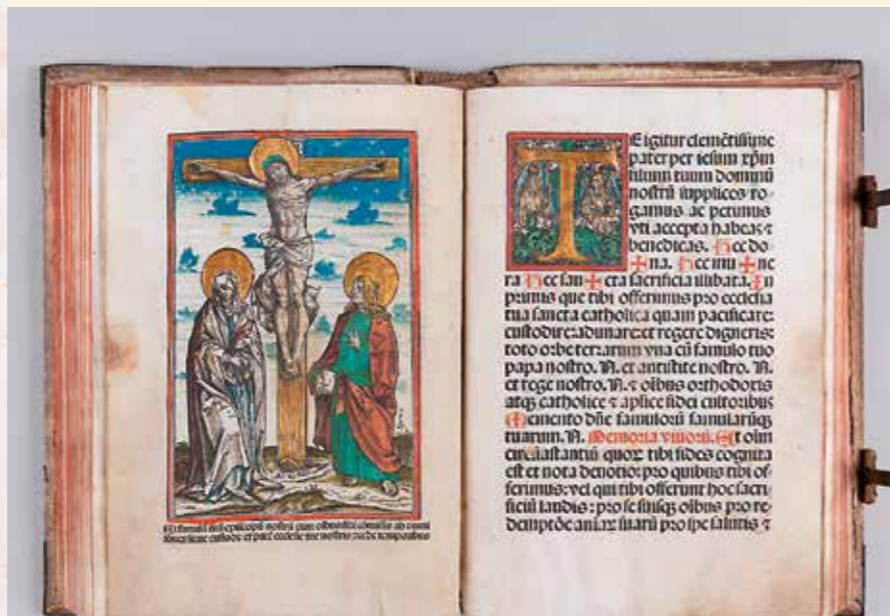 Et famulū tuū episcopū nostrū cum oībus
ecclesie
TE igitur clemētissime
pater per iesum xp̄m
filium tuum dominū
nostrū supplices ro-
gamus ac petimus
vti accepta habeas ⁊
benedicas. Hec do-
✠ na. Hec mu ✠ ne
ra Hec san ✠ cta sacrificia illibata. In
primis que tibi offerimus pro ecclesia
tua sancta catholica quam pacificare:
custodire: adunare: et regere digneris:
toto orbe terrarum vna cū famulo tuo
papa nostro. N. et antistite nostro. N.
et rege nostro. N. ⁊ oībus orthodoxis
atqꝫ catholice ⁊ apl̄ice fidei cultoribus
Memento dn̄e famulorū famularūqꝫ
tuarum. N. Memoria viuorū. Et oīm
circūastantiū quoꝝ tibi fides cognita
est et nota deuotio: pro quibus tibi of-
ferimus: vel qui tibi offerunt hoc sacri-
ficiū laudis: pro se suisqꝫ oībus pro re-
demptōe aīaꝝ suarū pro spe salutis ⁊